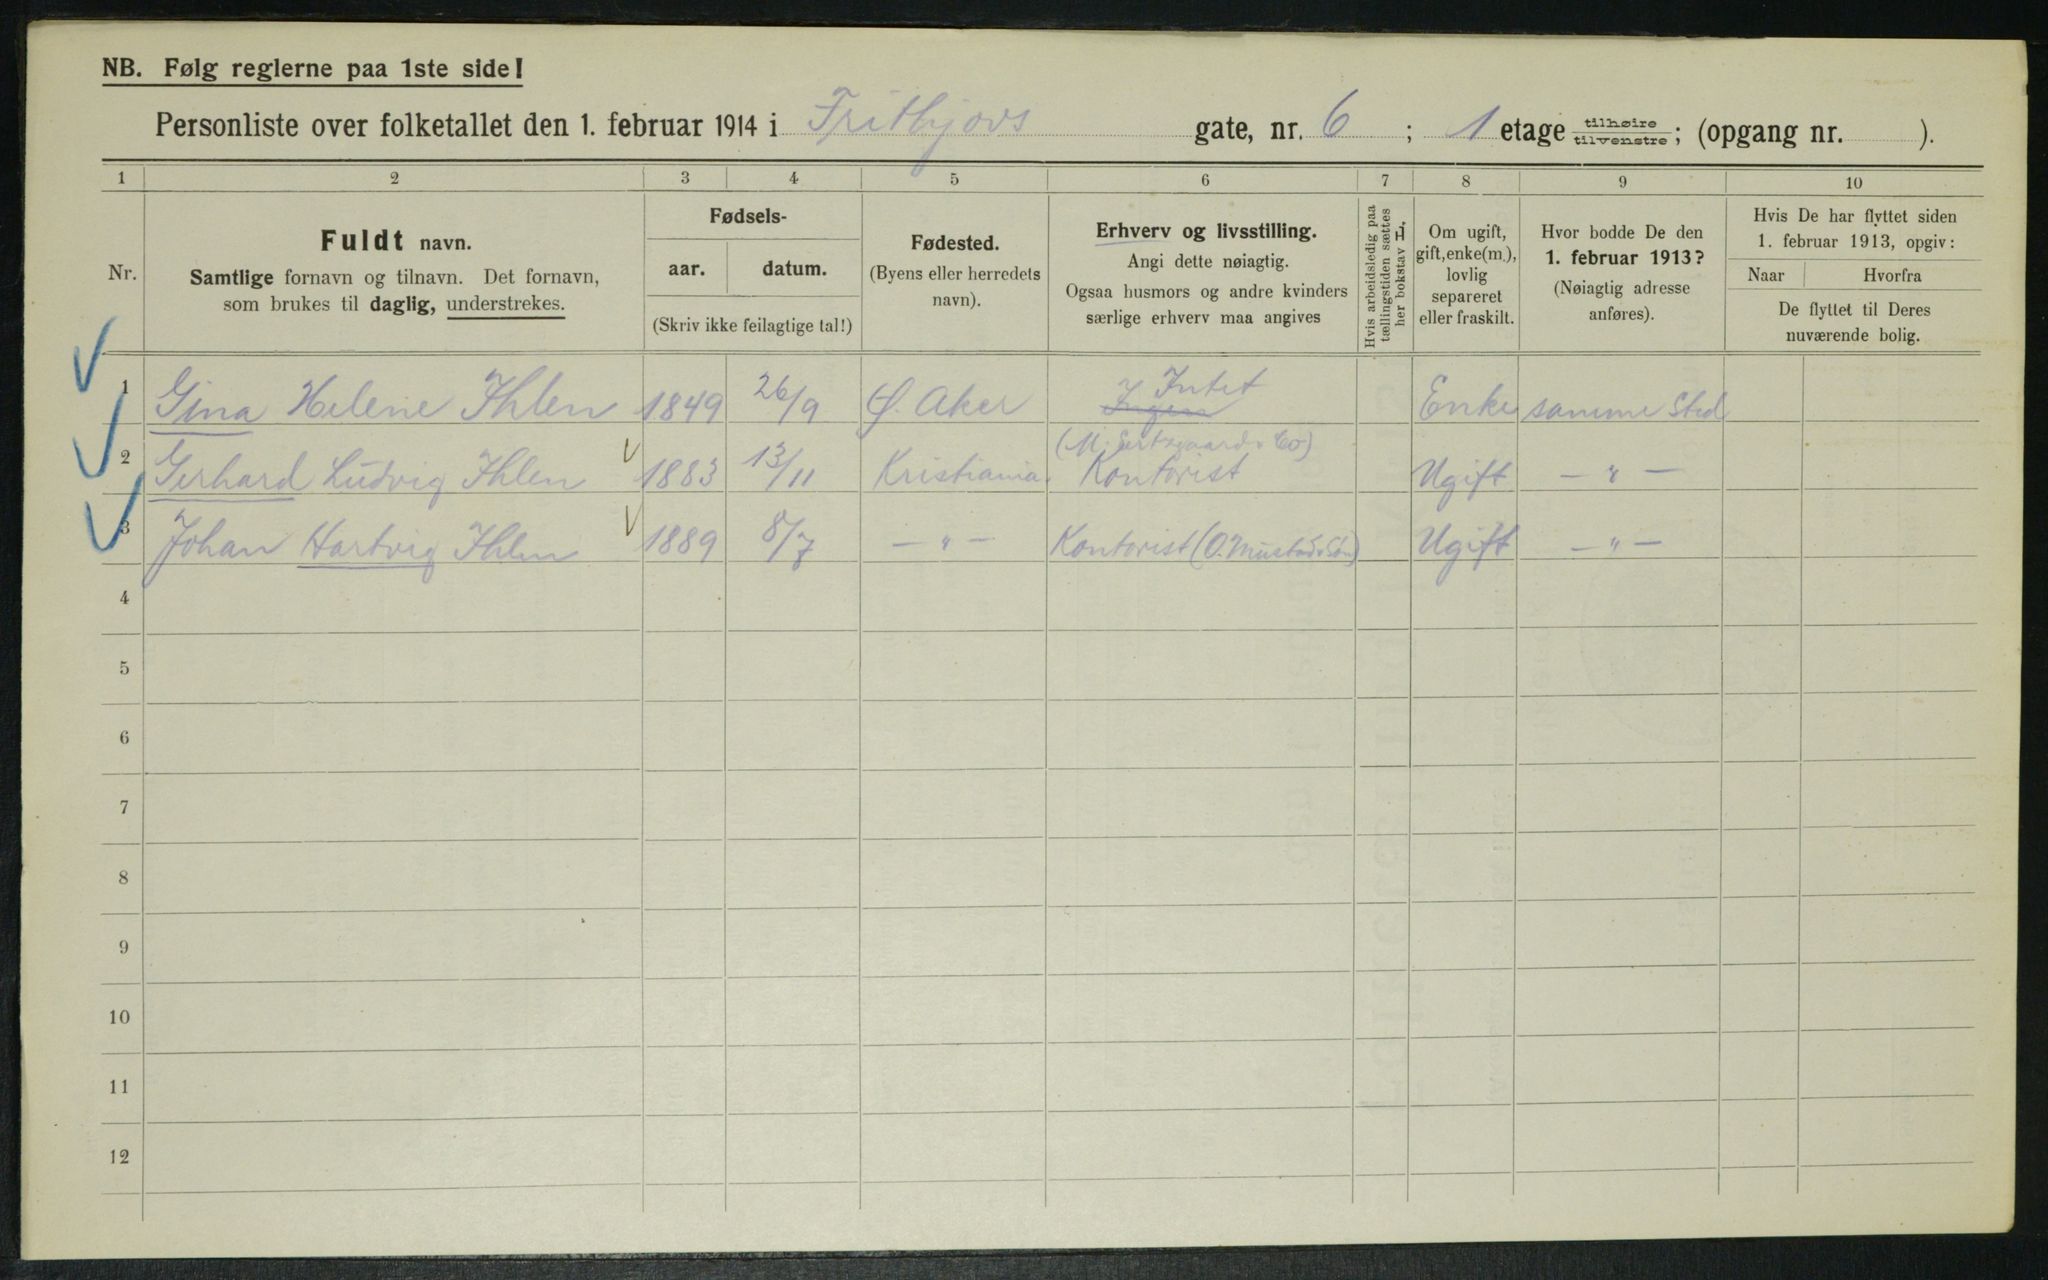 NB. Følg reglerne paa 1ste side!
Personliste over folketallet den 1. februar 1914 i Frithjovs gate, nr. 6 ; 1 etage tilhøire/tilvenstre; (opgang nr. ).
1 2 3 4 5 6 7 8 9 10
Nr.
Fuldt navn.
Samtlige fornavn og tilnavn. Det fornavn,
som brukes til daglig, understrekes.
Fødsels-
aar. datum.
(Skriv ikke feilagtige tal!)
Fødested.
(Byens eller herredets
navn).
Erhverv og livsstilling.
Angi dette nøiagtig.
Ogsaa husmors og andre kvinders
særlige erhverv maa angives
Hvis arbeidsledig paa
tællingstiden sættes
her bokstav L.
Om ugift,
gift, enke(m.),
lovlig
separeret
eller fraskilt.
Hvor bodde De den
1. februar 1913?
(Nøiagtig adresse
anføres).
Hvis De har flyttet siden
1. februar 1913, opgiv:
Naar Hvorfra
De flyttet til Deres
nuværende bolig.
1 Gina Helene Ihlen 1849 26/9 Ø. Aker Ingen Intet Enke samme Sted
2 Gerhard Ludvig Ihlen 1883 13/11 Kristiania Kontorist Ugift — " —
3 Johan Hartvig Ihlen 1889 8/7 — " — Kontorist (O. Mustad & Søn) Ugift — " —
4
5
6
7
8
9
10
11
12